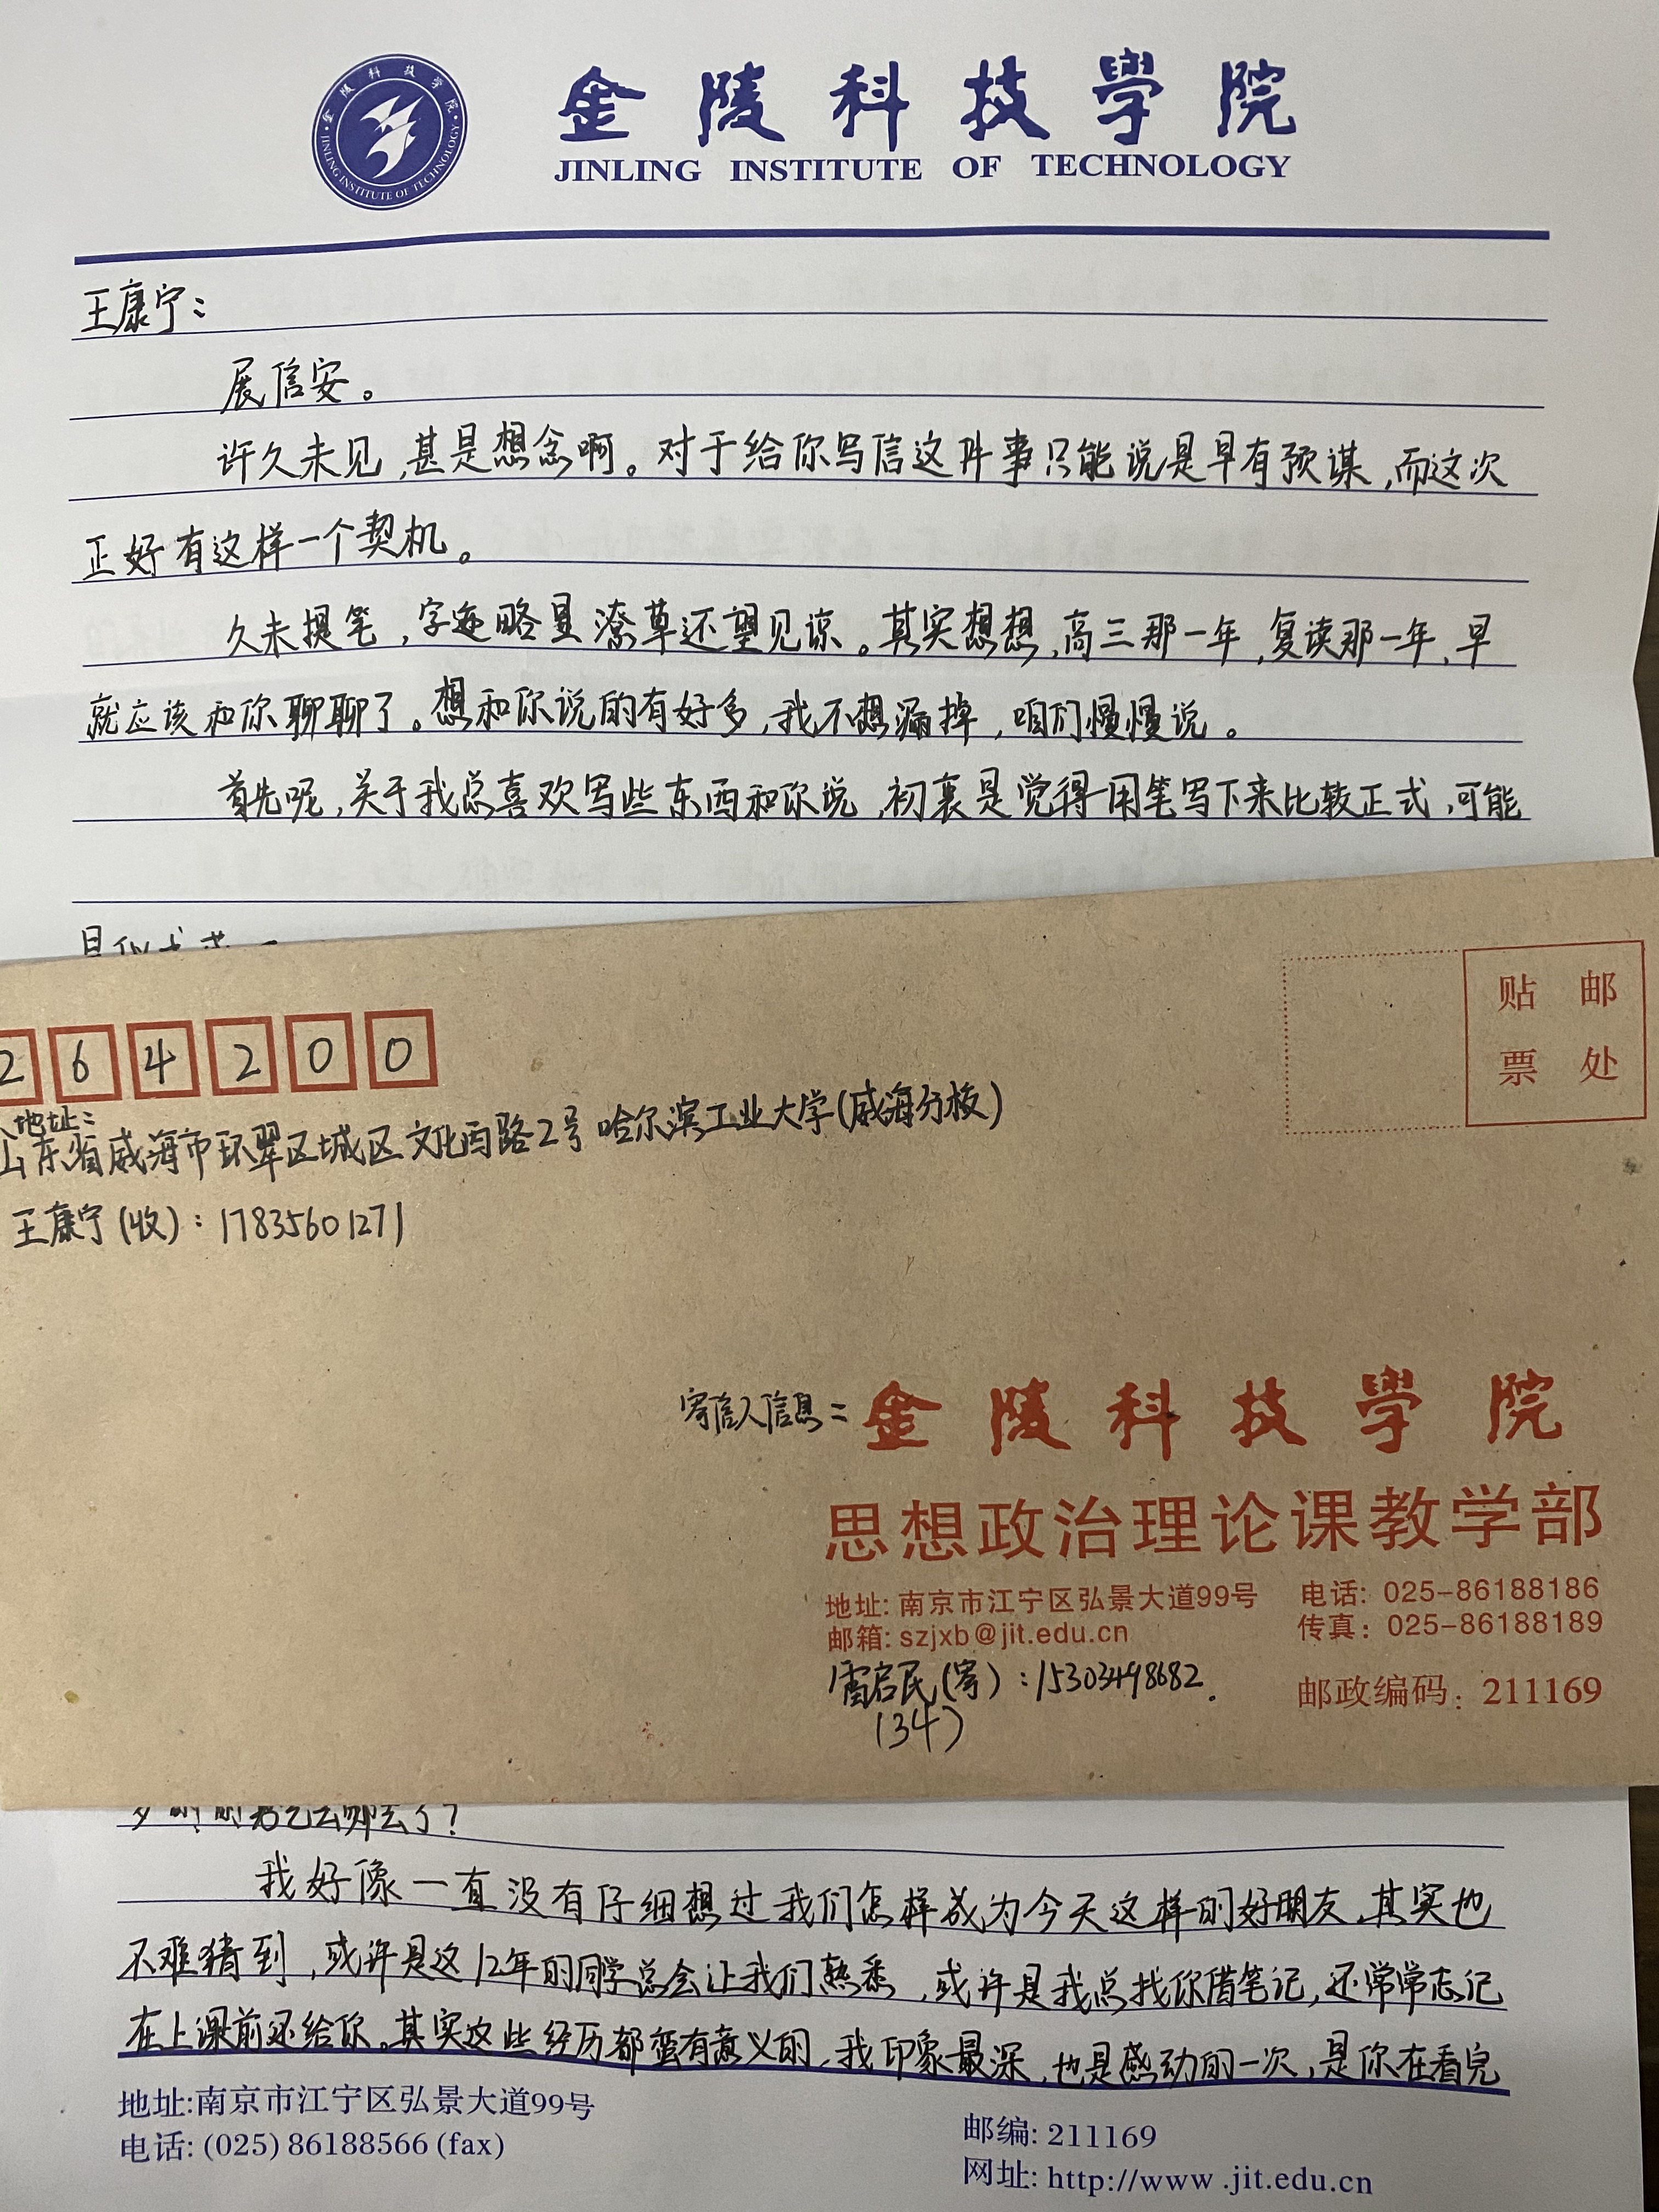 金陵科技學院
JINLING INSTITUTE OF TECHNOLOGY
金陵科技学院
JINLING INSTITUTE OF TECHNOLOGY
王康宁：
展信安。
许久未见，甚是想念啊。对于给你写信这件事只能说是早有预谋，而这次
正好有这样一个契机。
久未提笔，字迹略显潦草还望见谅。其实想想，高三那一年，复读那一年，早
就应该和你聊聊了。想和你说的有好多，我不想漏掉，咱们慢慢说。
首先呢，关于我总喜欢写些东西和你说，初衷是觉得用笔写下来比较正式，可能
264200
贴邮
票处
地址：
山东省威海市环翠区城区文化西路2号哈尔滨工业大学(威海分校)
王康宁(收)：17835601271
寄信人信息：金陵科技學院
思想政治理论课教学部
地址: 南京市江宁区弘景大道99号 电话: 025-86188186
邮箱: szjxb@jit.edu.cn 传真：025-86188189
雷启民(寄)：15303498682.
(34)
邮政编码：211169
去哪去了？
我好像一直没有仔细想过我们怎样成为今天这样的好朋友，其实也
不难猜到，或许是这12年的同学总会让我们熟悉，或许是我总找你借笔记，还常常忘记
在上课前还给你。其实这些经历都蛮有意义的，我印象最深，也是感动的一次，是你在看完
地址:南京市江宁区弘景大道99号
电话: (025) 86188566 (fax)
邮编: 211169
网址: http://www.jit.edu.cn